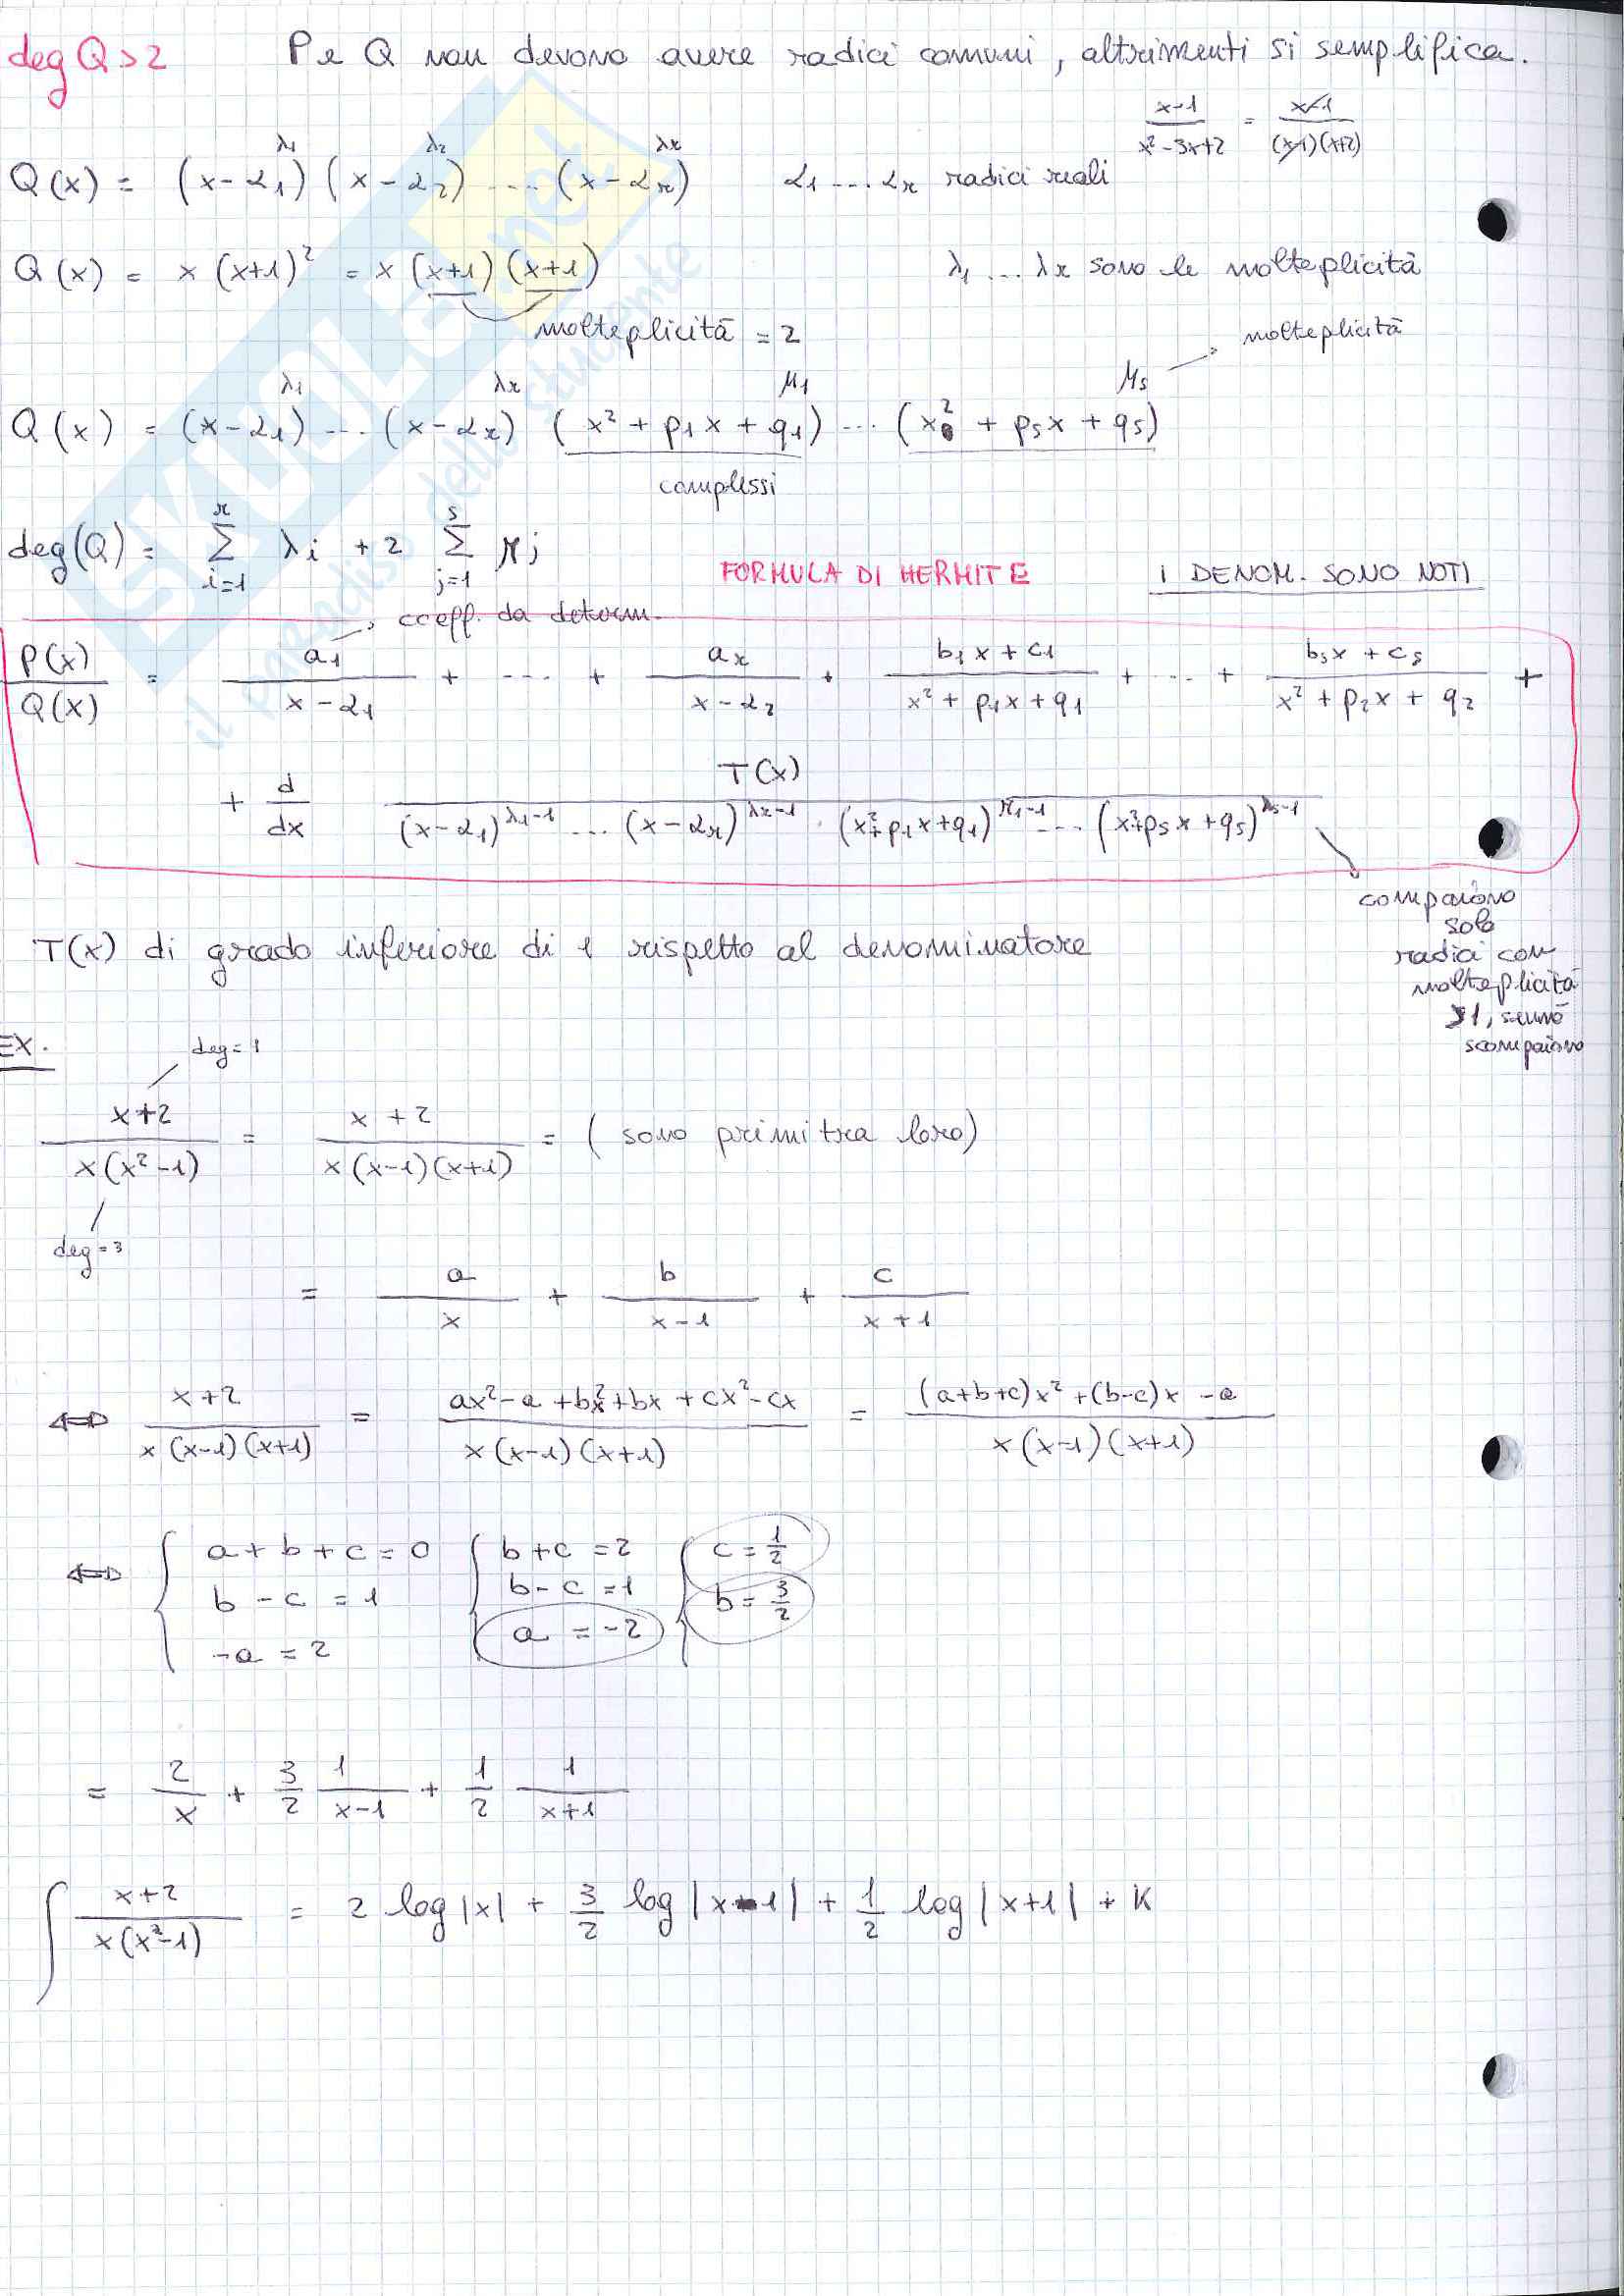 deg Q > 2 P e Q non devono avere radici comuni, altrimenti si semplifica.
x-1 / x² - 3x+2 = x-1 / (x-1)(x+2)
Q(x) = (x-α₁)^λ₁ (x-α₂)^λ₂ .... (x-αr)^λr α₁ .... αr radici reali
Q(x) = x (x+1)² = x (x+1) (x+1) λ₁ ... λr sono le molteplicità
molteplicità = 2 molteplicità
Q(x) = (x-α₁)^λ₁ ... (x-αr)^λr (x² + p₁x + q₁)^μ₁ ... (x² + psx + qs)^μs
complessi
deg(Q) = Σ_{i=1}^{r} λi + 2 Σ_{j=1}^{s} μj
FORMULA DI HERMITE I DENOM. SONO NOTI
coeff. da determ.
P(x)/Q(x) = a₁/(x-α₁) + .... + ar/(x-α₂) + (b₁x + c₁)/(x² + p₁x + q₁) + ... + (bsx + cs)/(x² + p₂x + q₂) +
+ d/dx T(x) / (x-α₁)^λ₁-1 ... (x-αr)^λr-1 · (x²+p₁x+q₁)^μ₁-1 ... (x²+psx+qs)^λs-1
compaiono
solo
radici con
molteplicità
>1, sennò
scompaiono
T(x) di grado inferiore di 1 rispetto al denominatore
EX.
deg=1
x+2 / x(x²-1) = x+2 / x(x-1)(x+1) = (sono primi tra loro)
deg=3
= a/x + b/(x-1) + c/(x+1)
⇔ x+2 / x(x-1)(x+1) = ax²-a+bx²+bx+cx²-cx / x(x-1)(x+1) = (a+b+c)x²+(b-c)x-a / x(x-1)(x+1)
⇔ { a+b+c=0 { b+c=2 { c=1/2
b-c=1 b-c=1 b=3/2
-a=2 a=-2
= 2/x + 3/2 1/(x-1) + 1/2 1/(x+1)
∫ x+2 / x(x²-1) = 2 log|x| + 3/2 log|x-1| + 1/2 log|x+1| + K
SKUOLA.net
il paradiso dello studente